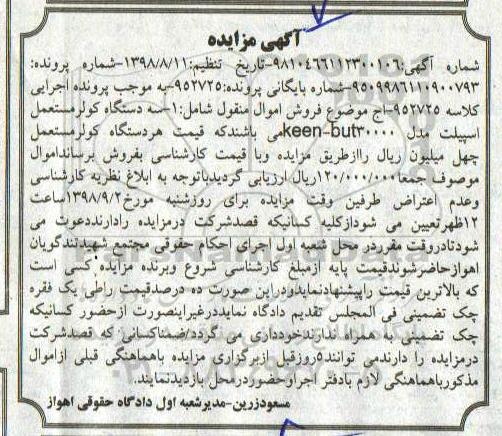 آگهی مزایده
شماره آگهی:۹۸۱۰۴۶۶۱۱۲۳۰۰۱۰۶-تاریخ تنظیم:۱۳۹۸/۸/۱۱-شماره پرونده:
۹۵۰۹۹۸۶۱۱۰۹۰۰۷۹۳-شماره بایگانی پرونده:۹۵۲۷۲۵-به موجب پرونده اجرایی
کلاسه ۹۵۲۷۲۵-اج موضوع فروش اموال منقول شامل:۱-سه دستگاه کولرمستعمل
اسپیلت مدل keen-but۳۰۰۰۰می باشندکه قیمت هردستگاه کولرمستعمل
چهل میلیون ریال راازطریق مزایده وبا قیمت کارشناسی بفروش برسانداموال
موصوف جمعا۱۲۰/۰۰۰/۰۰۰ریال ارزیابی گردیدباتوجه به ابلاغ نظریه کارشناسی
وعدم اعتراض طرفین وقت مزایده برای روزشنبه مورخ۱۳۹۸/۹/۲ساعت
۱۲ظهرتعیین می شودازکلیه کسانیکه قصدشرکت درمزایده رادارنددعوت می
شودتادروقت مقرردر محل شعبه اول اجرای احکام حقوقی مجتمع شهیدتندگویان
اهوازحاضرشوندقیمت پایه ازمبلغ کارشناسی شروع وبرنده مزایده کسی است
که بالاترین قیمت راپیشنهادنمایدودراین صورت ده درصدقیمت راطی یک فقره
چک تضمینی فی المجلس تقدیم دادگاه نمایددرغیراینصورت ازحضور کسانیکه
چک تضمینی به همراه ندارندخودداری می گردد/ضمناکسانی که قصدشرکت
درمزایده را دارندمی توانند۵روزقبل ازبرگزاری مزایده باهماهنگی قبلی ازاموال
مذکورباهماهنگی لازم بادفتر اجراوحضوردرمحل بازدیدنمایند.
مسعودزرین-مدیرشعبه اول دادگاه حقوقی اهواز
ParsNamadData